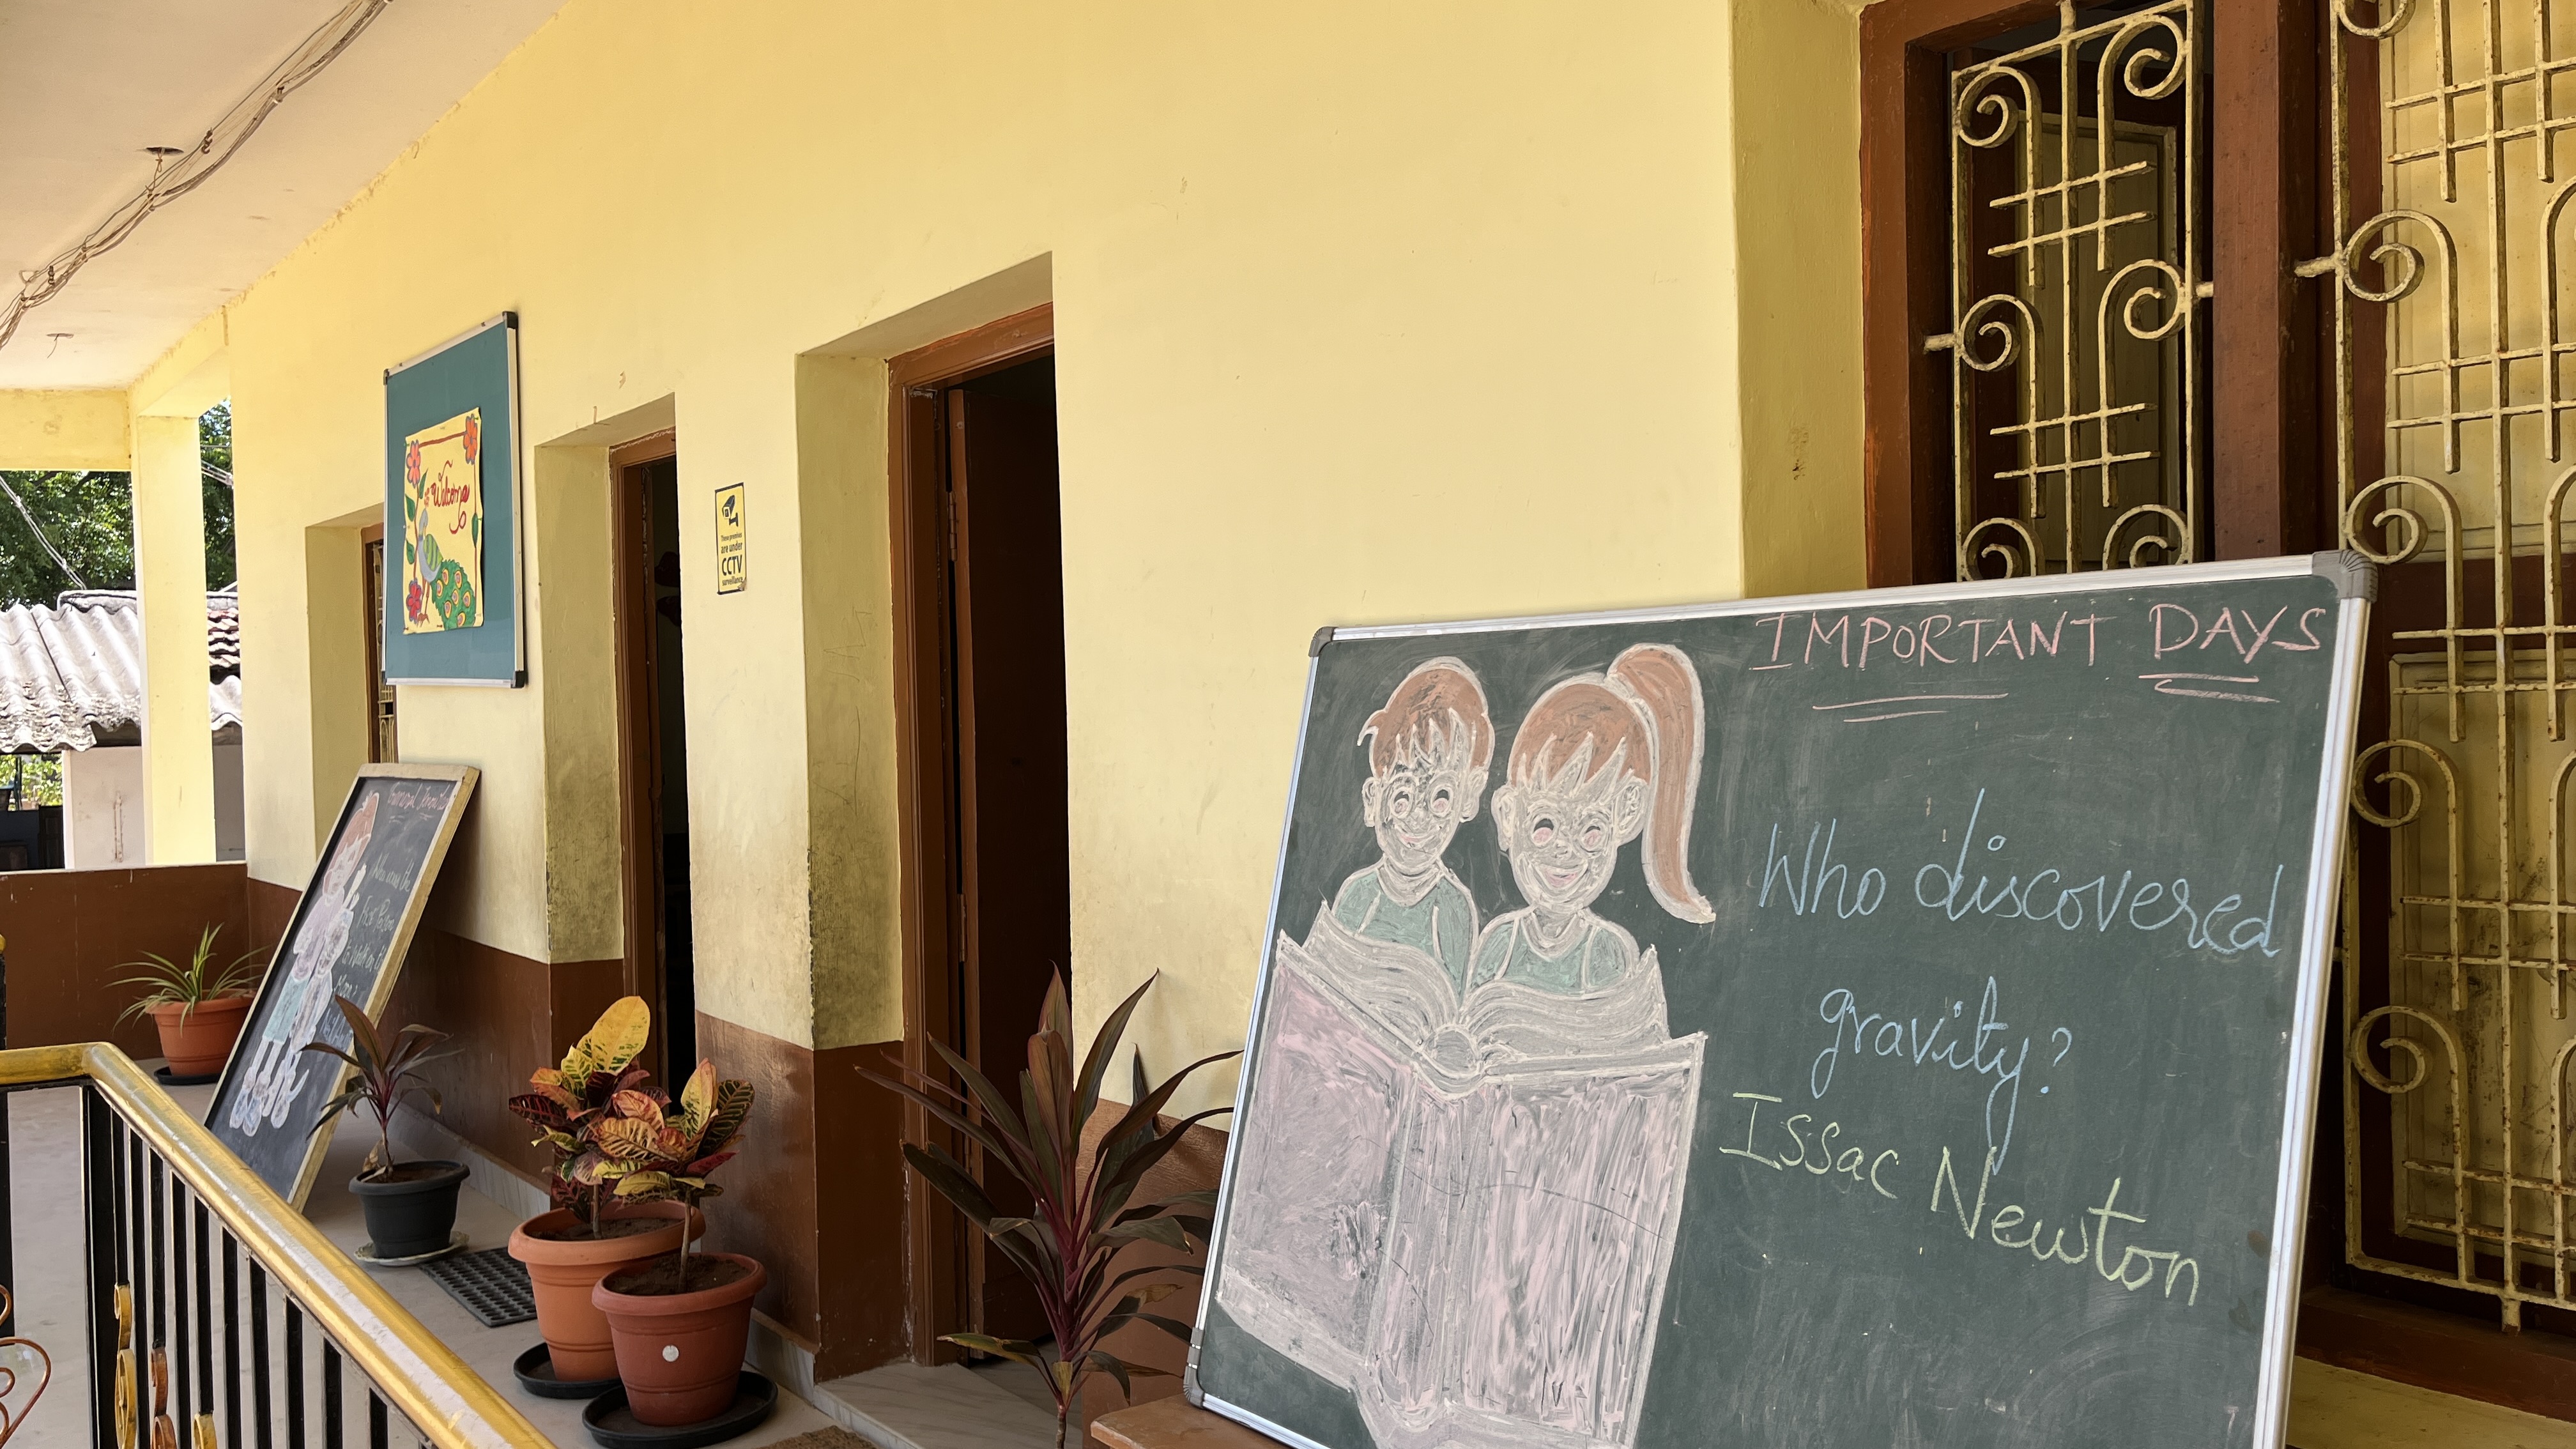 Welcome
These premises
are under
CCTV
surveillance
General Knowledge
Who was the
First Person
to Walk on
Moon?
IMPORTANT DAYS
Who discovered
gravity?
Issac Newton